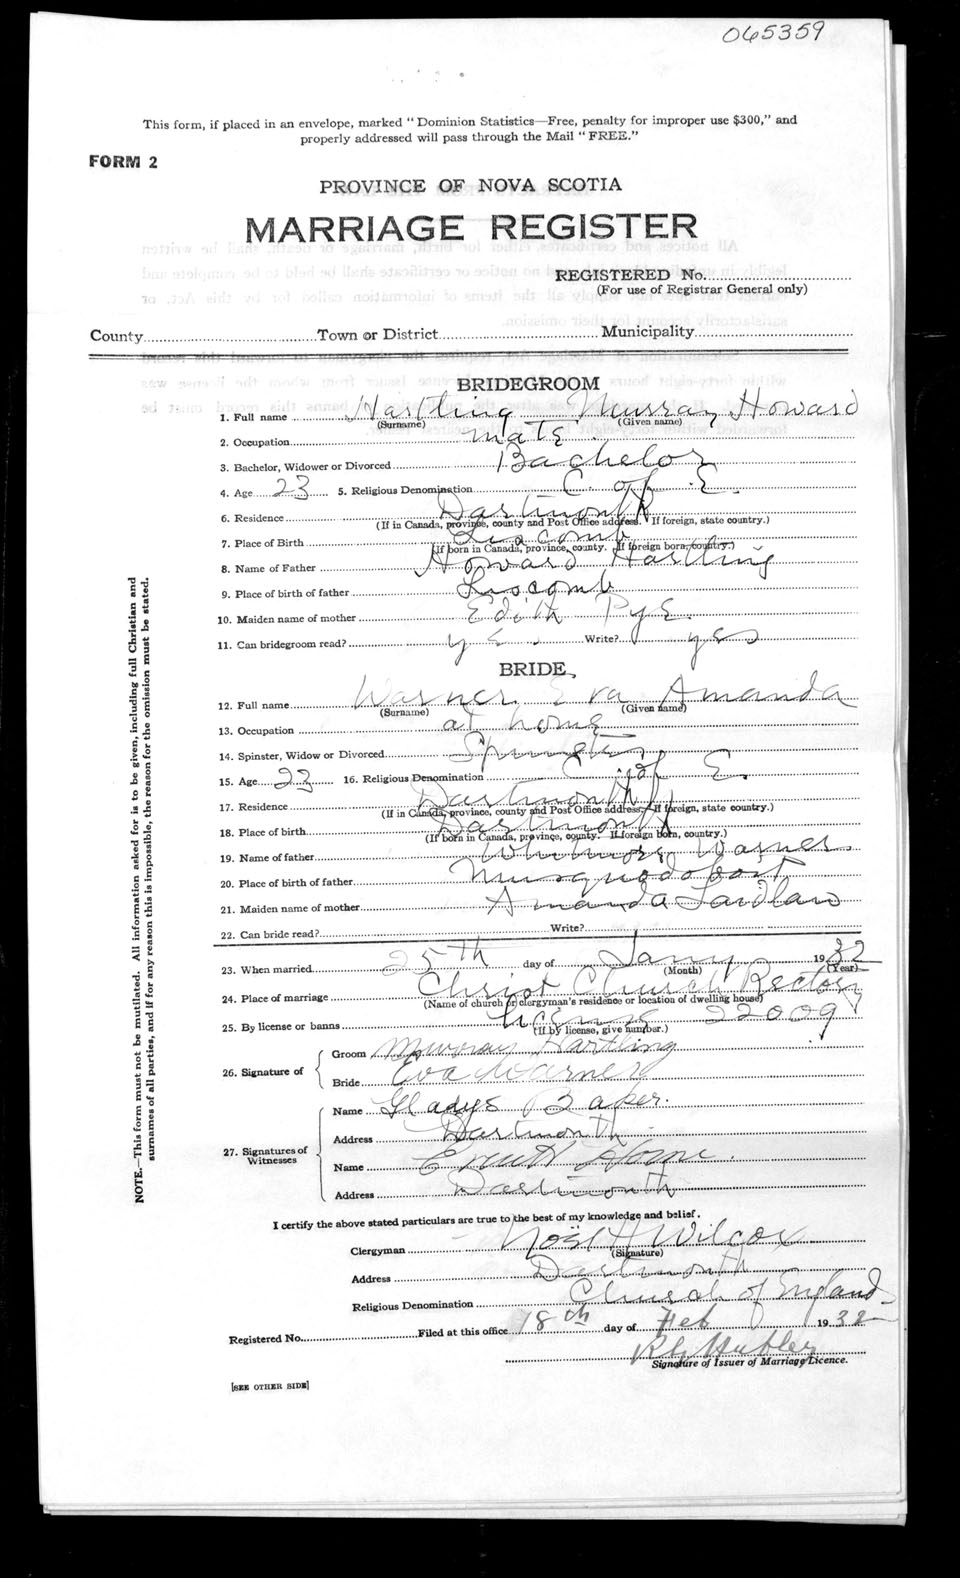 065359
This form, if placed in an envelope, marked "Dominion Statistics—Free, penalty for improper use $300," and
properly addressed will pass through the Mail "FREE."
FORM 2
PROVINCE OF NOVA SCOTIA
MARRIAGE REGISTER
REGISTERED No.
(For use of Registrar General only)
County Town or District Municipality
BRIDEGROOM
1. Full name Hartling Murray Howard
(Surname) (Given name)
2. Occupation mate
3. Bachelor, Widower or Divorced Bachelor
4. Age 23 5. Religious Denomination C of E.
6. Residence Dartmouth
(If in Canada, province, county and Post Office address. If foreign, state country.)
7. Place of Birth Liscomb
(If born in Canada, province, county. If foreign born, country.)
8. Name of Father Howard Hartling
9. Place of birth of father Liscomb
10. Maiden name of mother Edith Pye
11. Can bridegroom read? yes Write? yes
BRIDE
12. Full name Warner Eva Amanda
(Surname) (Given name)
13. Occupation at home
14. Spinster, Widow or Divorced Spinster
15. Age 23 16. Religious Denomination C of E.
17. Residence Dartmouth
(If in Canada, province, county and Post Office address. If foreign, state country.)
18. Place of birth Dartmouth
(If born in Canada, province, county. If foreign born, country.)
19. Name of father Whitmore Warner
20. Place of birth of father Musquodoboit
21. Maiden name of mother Amanda Laidlaw
22. Can bride read? Write?
23. When married 25th day of Jany 1932
(Month) (Year)
24. Place of marriage Christ Church Rectory
(Name of church or clergyman's residence or location of dwelling house)
25. By license or banns License 22009
(If by license, give number.)
26. Signature of Groom Murray Hartling
Bride Eva Warner
27. Signatures of Witnesses Name Gladys Baker.
Address Dartmouth
Name Horne.
Address Dartmouth
I certify the above stated particulars are true to the best of my knowledge and belief.
Clergyman Noel H Wilcox
(Signature)
Address Dartmouth
Religious Denomination Church of England
Registered No. Filed at this office 18th day of Feb 1932
Hubley
Signature of Issuer of Marriage Licence.
[SEE OTHER SIDE]
NOTE.—This form must not be mutilated. All information asked for is to be given, including full Christian and
surnames of all parties, and if for any reason this is impossible, the reason for the omission must be stated.